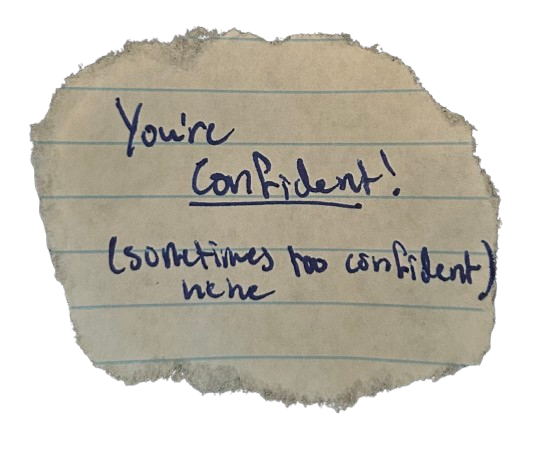 You're
confident!
(sometimes too confident)
hehe